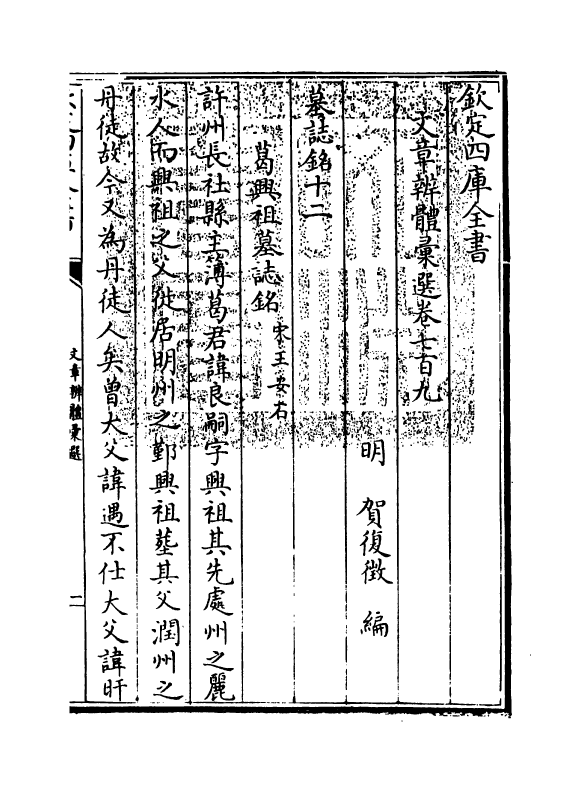 欽定四庫全書
文章辨體彙選卷七百九
明　賀復徵　編
墓誌銘十二
葛興祖墓誌銘　宋王安石
許州長社縣主簿葛君諱良嗣字興祖其先處州之麗
水人而興祖之父徙居明州之鄞興祖葬其父潤州之
丹徒故今又為丹徒人矣曾大父諱遇不仕大父諱旰
文章辨體彙選
二